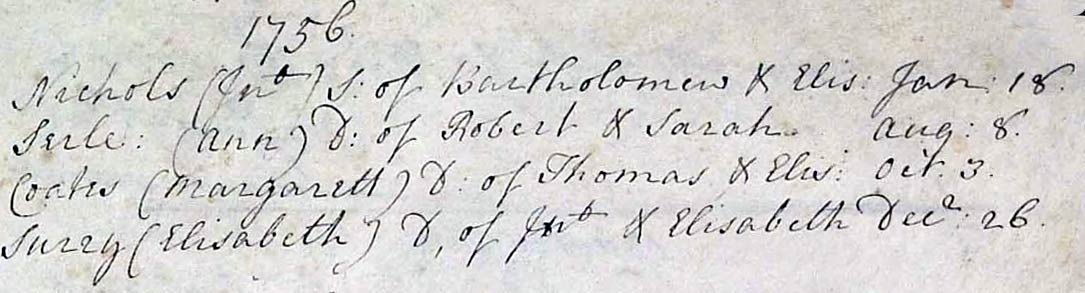 1756.
Nichols (Jnº) S: of Bartholomew & Elis: Jan: 18.
Serle: (Ann) D: of Robert & Sarah. Aug: 8.
Coates (Margarett) D: of Thomas & Elis: Oct. 3.
Surry (Elisabeth) D, of Jnº & Elisabeth Decr: 26.